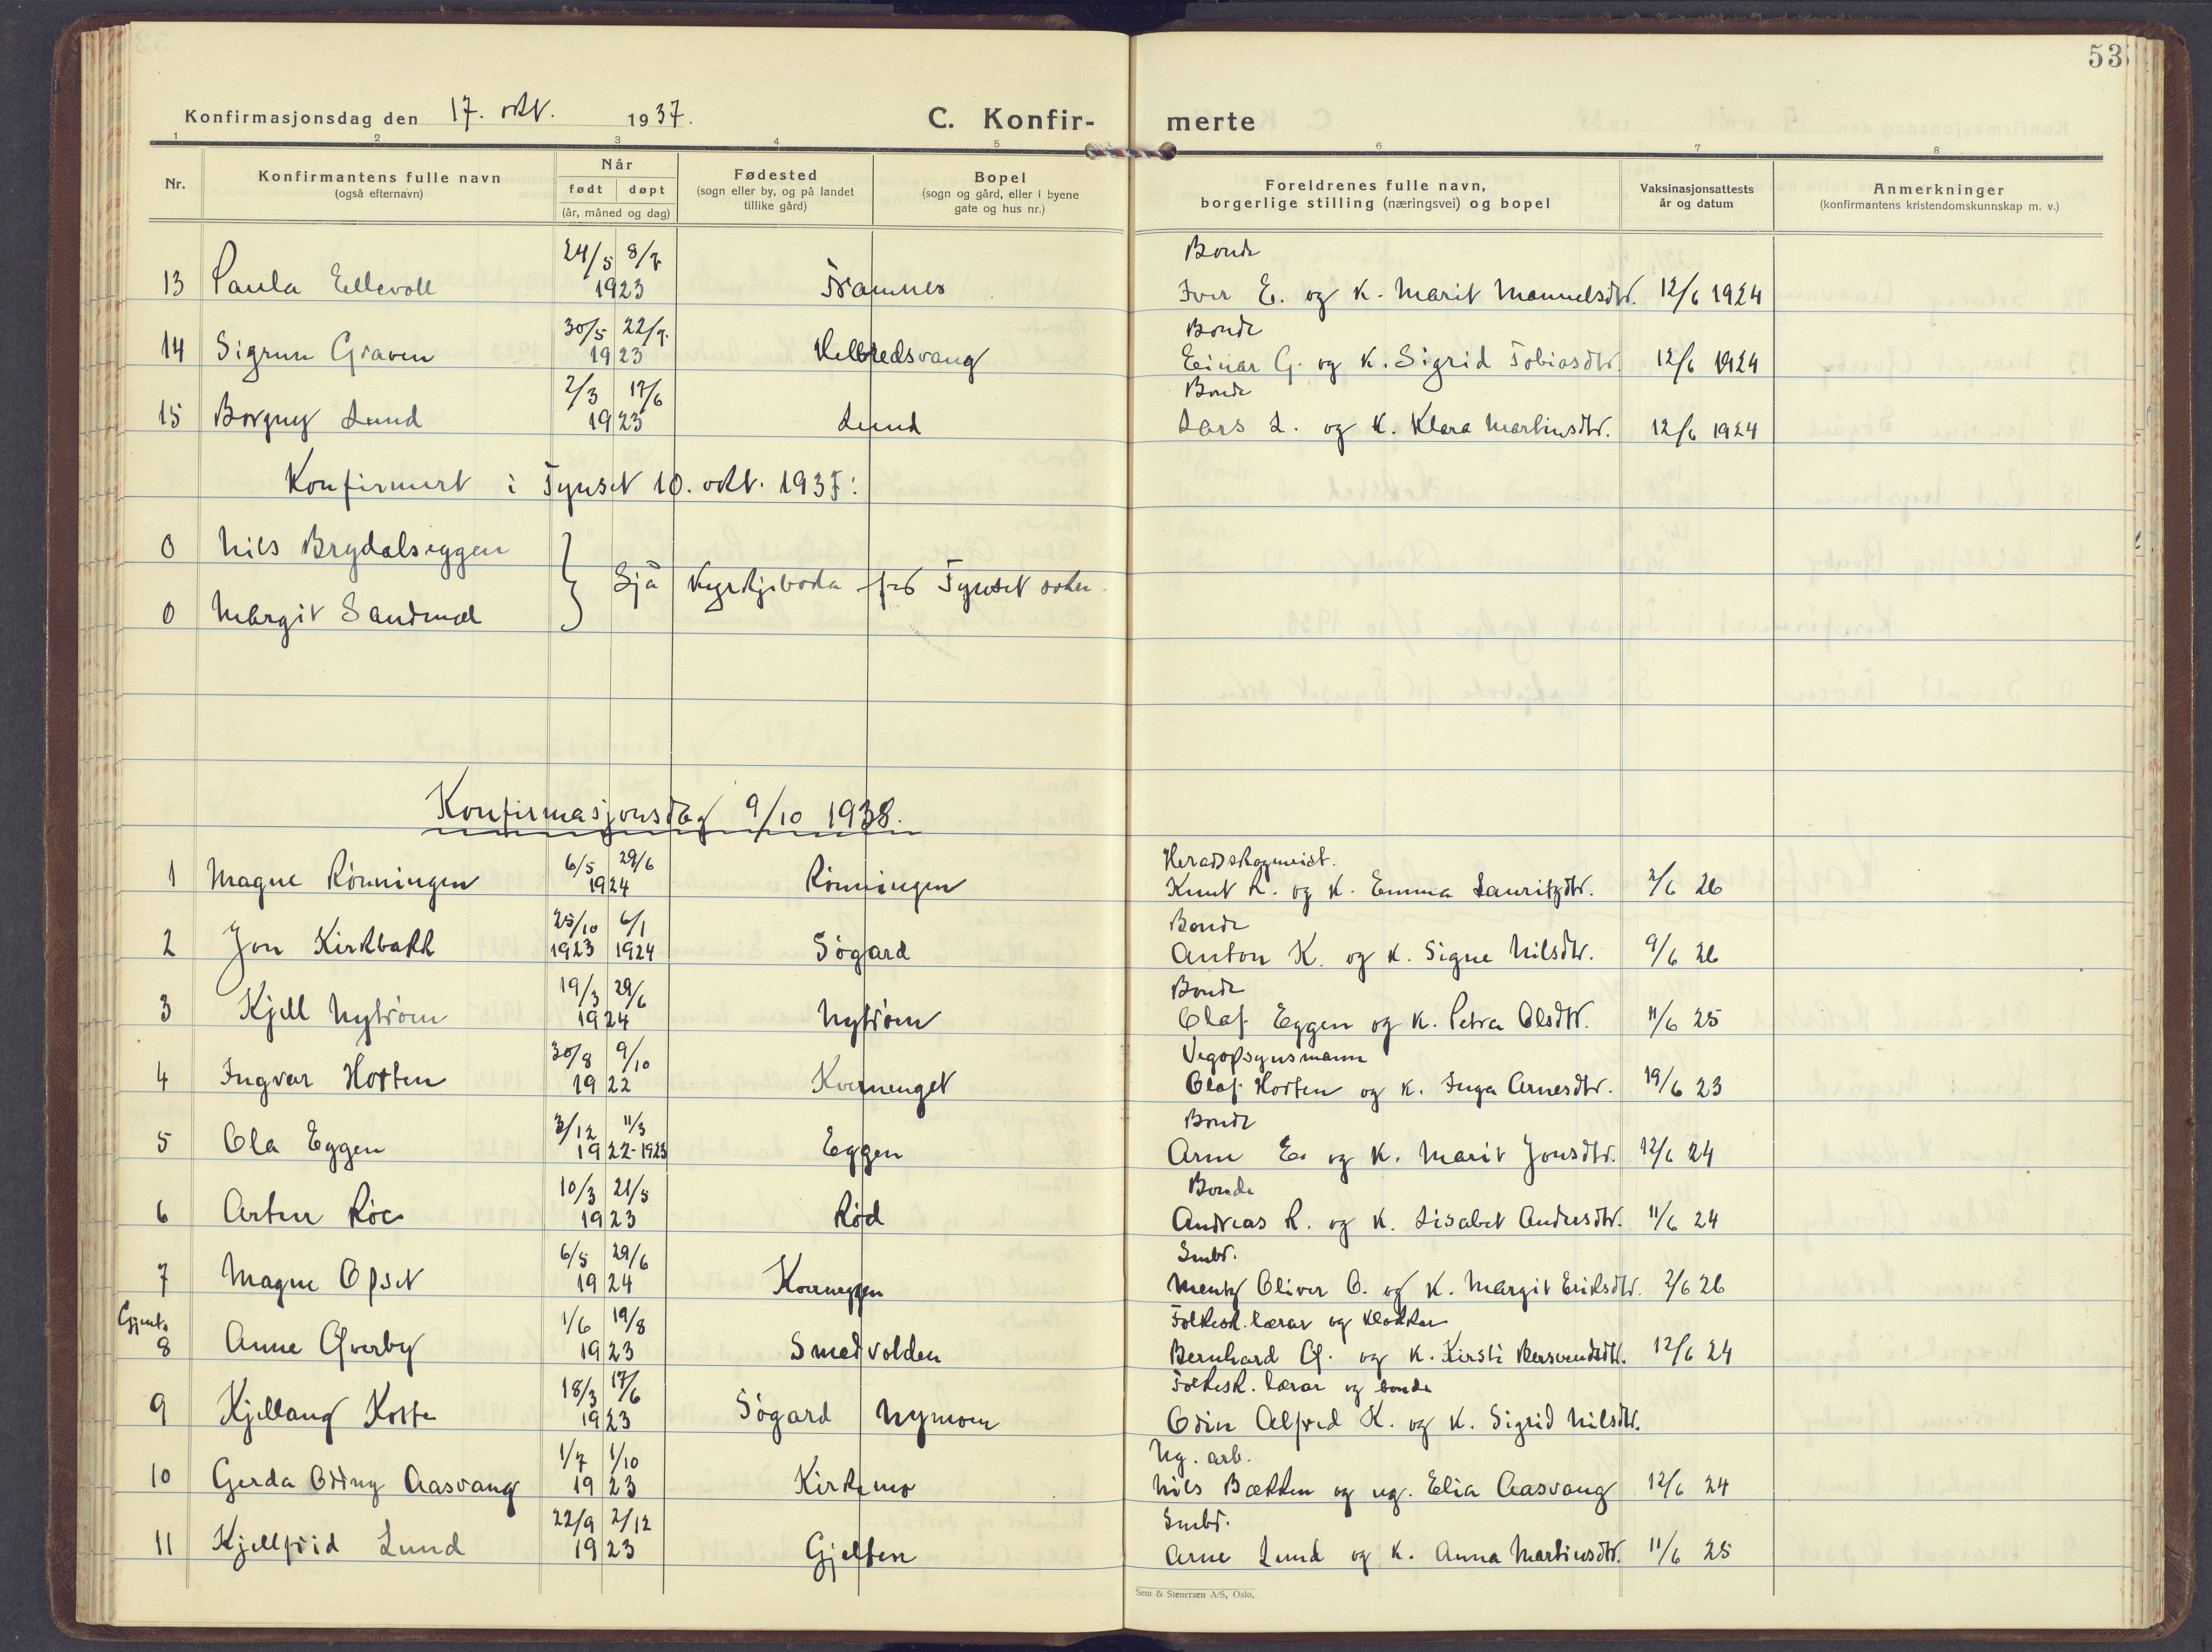 53
Konfirmasjonsdag den 17. okt. 1937. C. Konfir- merte
1 2 3 4 5 6 7 8
Nr. Konfirmantens fulle navn (også efternavn) Når født døpt (år, måned og dag) Fødested (sogn eller by, og på landet tillike gård) Bopel (sogn og gård, eller i byene gate og hus nr.) Foreldrenes fulle navn, borgerlige stilling (næringsvei) og bopel Vaksinasjonsattests år og datum Anmerkninger (konfirmantens kristendomskunnskap m. v.)
24/5 8/7 Bonde
13 Paula Ellevoll 1923 Tramnes Iver E. og k. Marit Manuelsdtr. 12/6 1924
30/5 22/7. Bonde
14 Sigrun Graven 1923 Helbredsvang Einar G. og k. Sigrid Tobiasdtr. 12/6 1924
2/3 17/6 Bonde
15 Borgny Lund 1923 Lund Lars L. og k. Klara Martinsdtr. 12/6 1924
Konfirmert i Tynset 10. okt. 1937:
0 Nils Brydalseggen
Sjå kyrkjeboka for Tynset sokn
0 Margit Sandmæl
Konfirmasjonsdag 9/10 1938.
6/5 29/6
1 Magne Rønningen 1924 Rønningen Knut R. og k. Emma Lauritzdtr. 2/6 26
25/10 6/1 Bonde
2 Jon Kirkbakk 1923 1924 Søgard Anton K. og k. Signe Nilsdtr. 9/6 26
19/3 29/6 Bonde
3 Kjell Nytrøen 1924 Nytrøen Olaf Eggen og k. Petra Olsdtr. 11/6 25
30/8 9/10 Vegopsynsmann
4 Ingvar Horten 1922 Kvernenget Olaf Horten og k. Inga Arnesdtr. 19/6 23
3/12 11/3 Bonde
5 Ola Eggen 1922-1923 Eggen Arne E. og k. Marit Jonsdtr. 12/6 24
10/3 21/5 Bonde
6 Artur Røe 1923 Rød Andreas R. og k. Lisabet Andersdtr. 11/6 24
6/5 29/6 Smbr.
7 Magne Opset 1924 Kverneggen Mentz Oliver O. og k. Margit Eriksdtr. 2/6 26
Gjent. 1/6 19/8 Folkesk. lærar og klokkar
8 Anne Øverby 1923 Smedvolden Bernhard Ø. og k. Kirsti Bersvendsdtr. 12/6 24
18/3 17/6 Folkesk. lærar og bonde
9 Kjellaug Koste 1923 Søgard Nymoen Odin Alfred K. og k. Sigrid Nilsdtr.
1/7 1/10 Ug. arb.
10 Gerda Oddny Aasvang 1923 Kirkemo Nils Bækken og ug. Elia Aasvang 12/6 24
22/9 2/12 Smbr.
11 Kjellfrid Lund 1923 Gjelten Arne Lund og k. Anna Martinsdtr. 11/6 25
Sem & Stenersen A/S, Oslo.